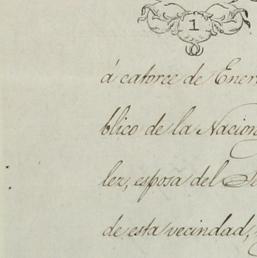 1
á catorce de Ener
blico de la Nacion
ler, esposa del S
de esta vecindad,